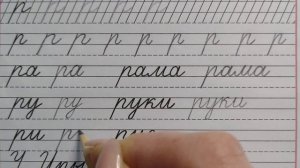 р
р р р р р р р р р
ра ра рама рама
ру ру руки руки
ри р